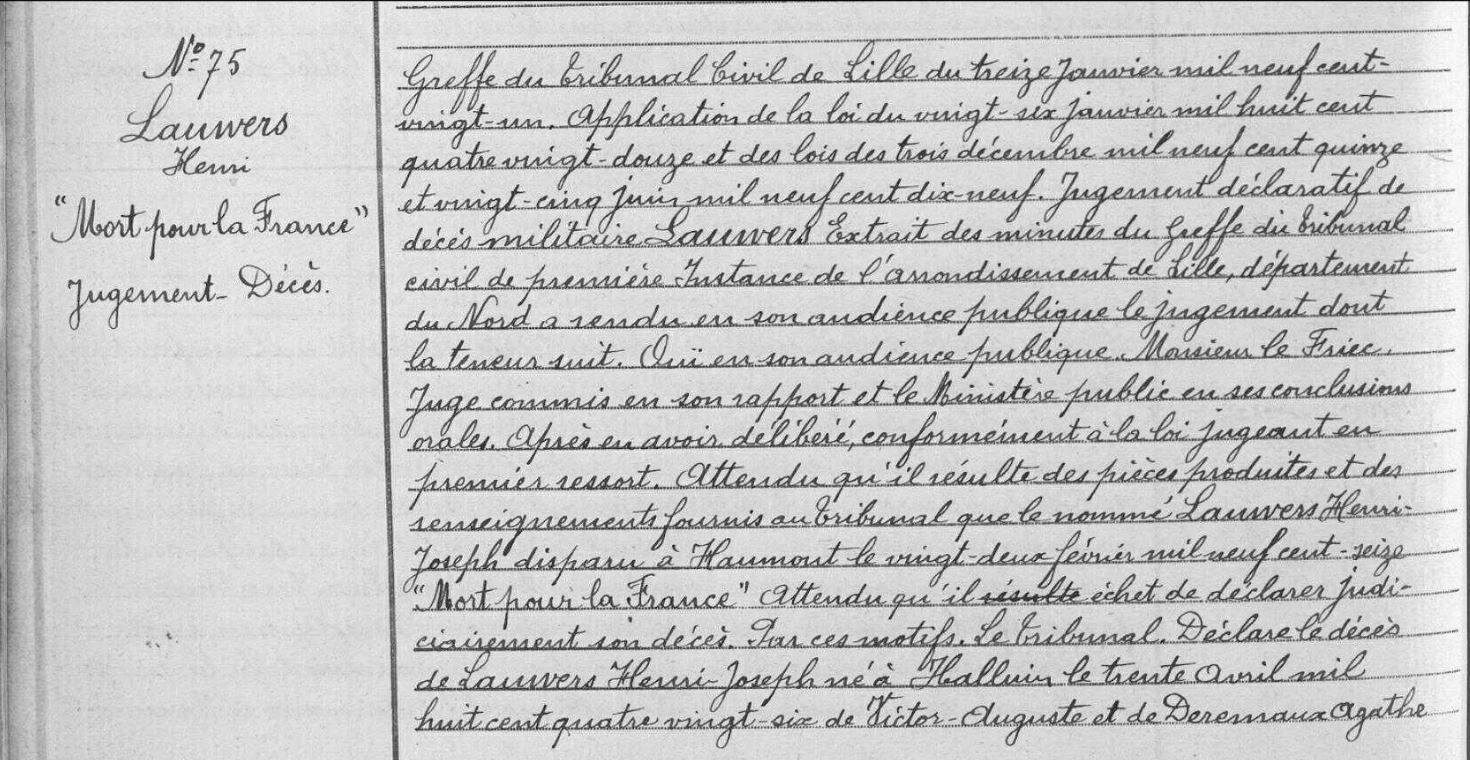 N° 75
Lauwers
Henri
"Mort pour la France"
Jugement - Décès.
Greffe du tribunal Civil de Lille du treize Janvier mil neuf cent-
vingt-un. Application de la loi du vingt-six janvier mil huit cent
quatre vingt-douze et des lois des trois décembre mil neuf cent quinze
et vingt-cinq juin mil neuf cent dix-neuf. Jugement déclaratif de
décès militaire Lauwers Extrait des minutes du Greffe du tribunal
civil de première Instance de l'arrondissement de Lille, département
du Nord a rendu en son audience publique le jugement dont
la teneur suit. Ouï en son audience publique. Monsieur le Friec.
Juge commis en son rapport et le Ministère public en ses conclusions
orales. Après en avoir délibéré, conformément à la loi jugeant en
premier ressort. Attendu qu'il résulte des pièces produites et des
renseignements fournis au tribunal que le nommé Lauwers Henri-
Joseph disparu à Haumont le vingt-deux février mil neuf cent-seize
"Mort pour la France" Attendu qu'il résulte échet de déclarer judi-
ciairement son décès. Par ces motifs. Le tribunal. Déclare le décès
de Lauwers Henri-Joseph né à Halluin le trente Avril mil
huit cent quatre vingt-six de Victor-Auguste et de Deremaux Agathe